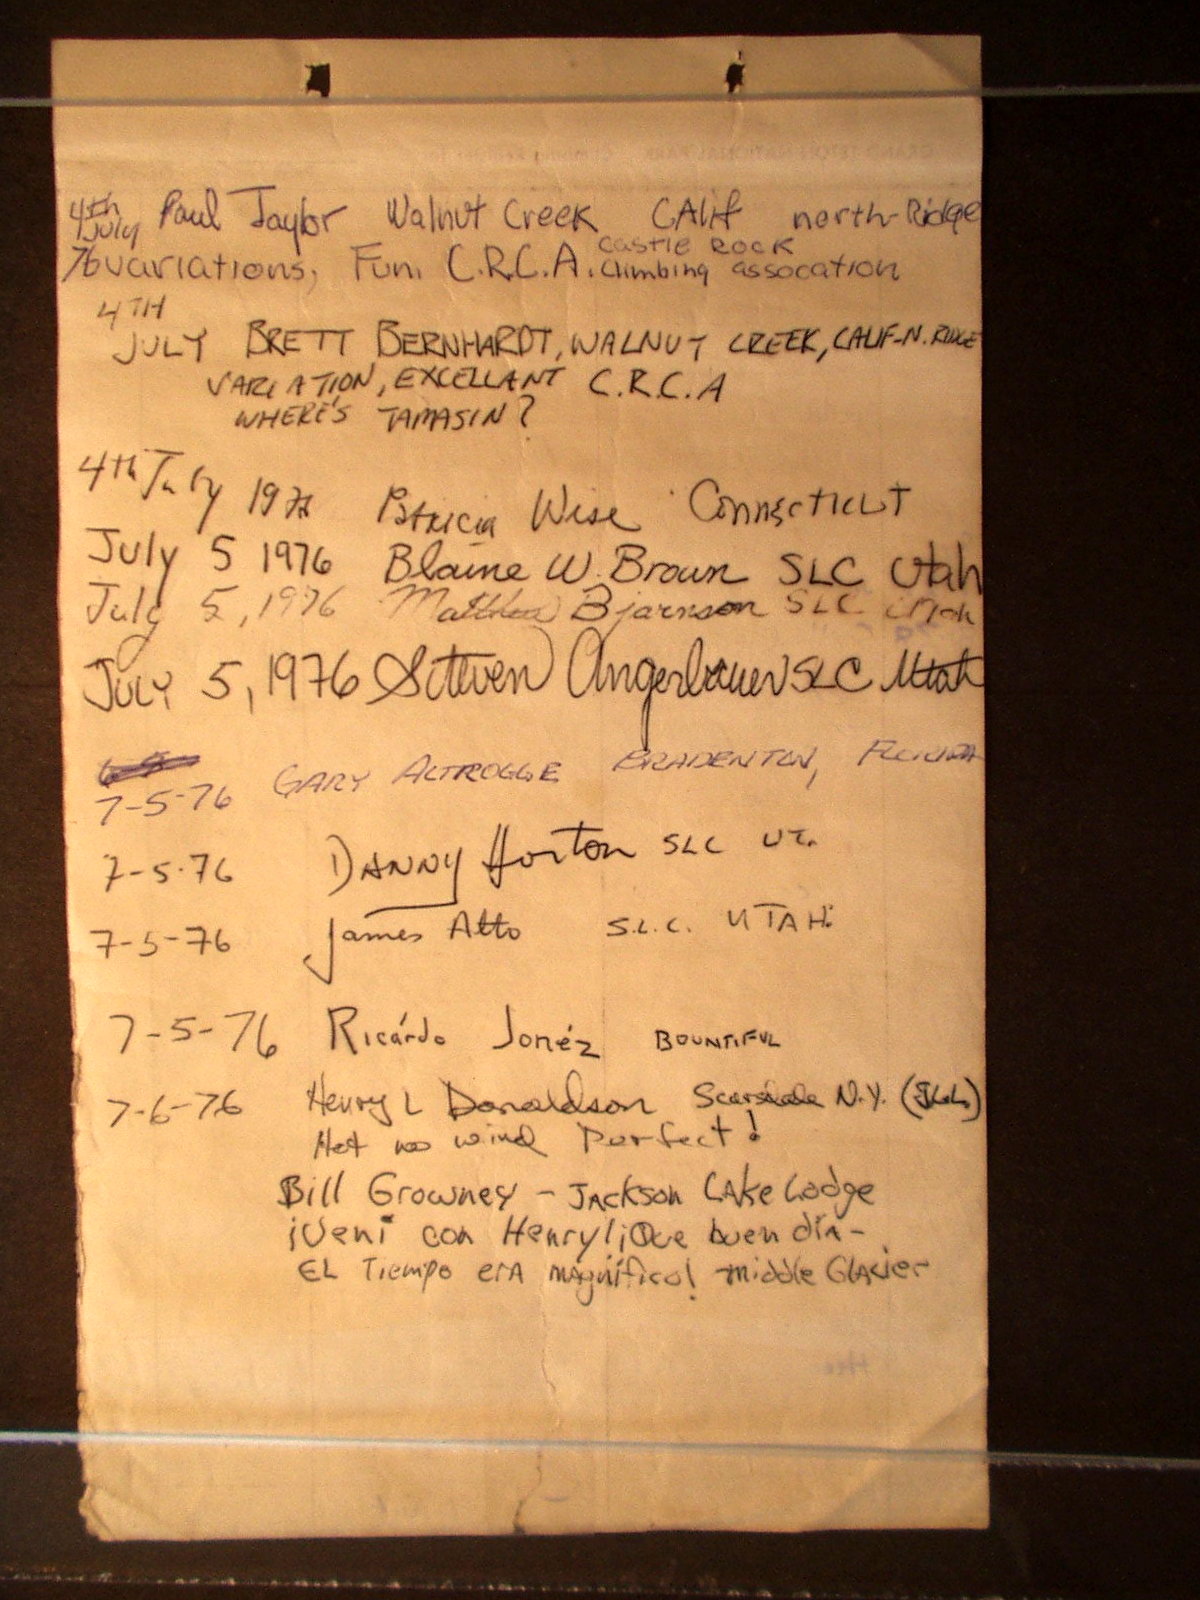 4th July Paul Taylor Walnut Creek CAlif north-Ridge
76 variations, Fun. C.R.C.A. Castle Rock Climbing assocation
4TH
JULY BRETT BERNHARDT, WALNUT CREEK, CALIF-N. RIDGE
VARIATION, EXCELLANT C.R.C.A
WHERE'S TAMASIN?
4th July Patricia Wise Connecticut
July 5 1976 Blaine W. Brown SLC Utah
July 5, 1976 Bjarnson SLC Utah
JULY 5, 1976 Steven Angerbauer SLC Utah
7-5-76 GARY ALTROGGE BRADENTON, FLORIDA
7-5-76 DANNY Horton SLC UT.
7-5-76 James Alto S.L.C. UTAH.
7-5-76 Ricárdo Jonéz BOUNTIFUL
7-6-76 Henry L Donaldson Scarsdale N.Y.
Hot no wind Perfect!
Bill Growney - JACKson LAke Lodge
¡Veni con Henry! ¡Que buen día-
EL Tiempo erA magnífico! middle Glacier